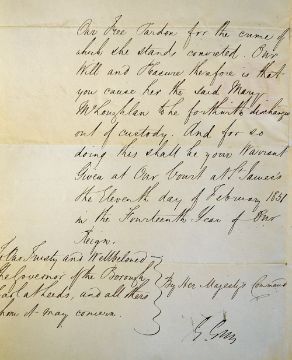 Our Free Pardon for the crime of
which she stands convicted. Our
Will and Pleasure therefore is that
you cause her the said Mary
McLoughlan to be forthwith discharged
out of custody. And for so
doing this shall be your Warrant
Given at Our Court at St James's
the Eleventh day of February 1851
in the Fourteenth Year of Our
Reign.
Our Trusty and Wellbeloved
the Governor of the Borough
at Leeds, and all others
whom it may concern.
By Her Majesty's Command
G Grey